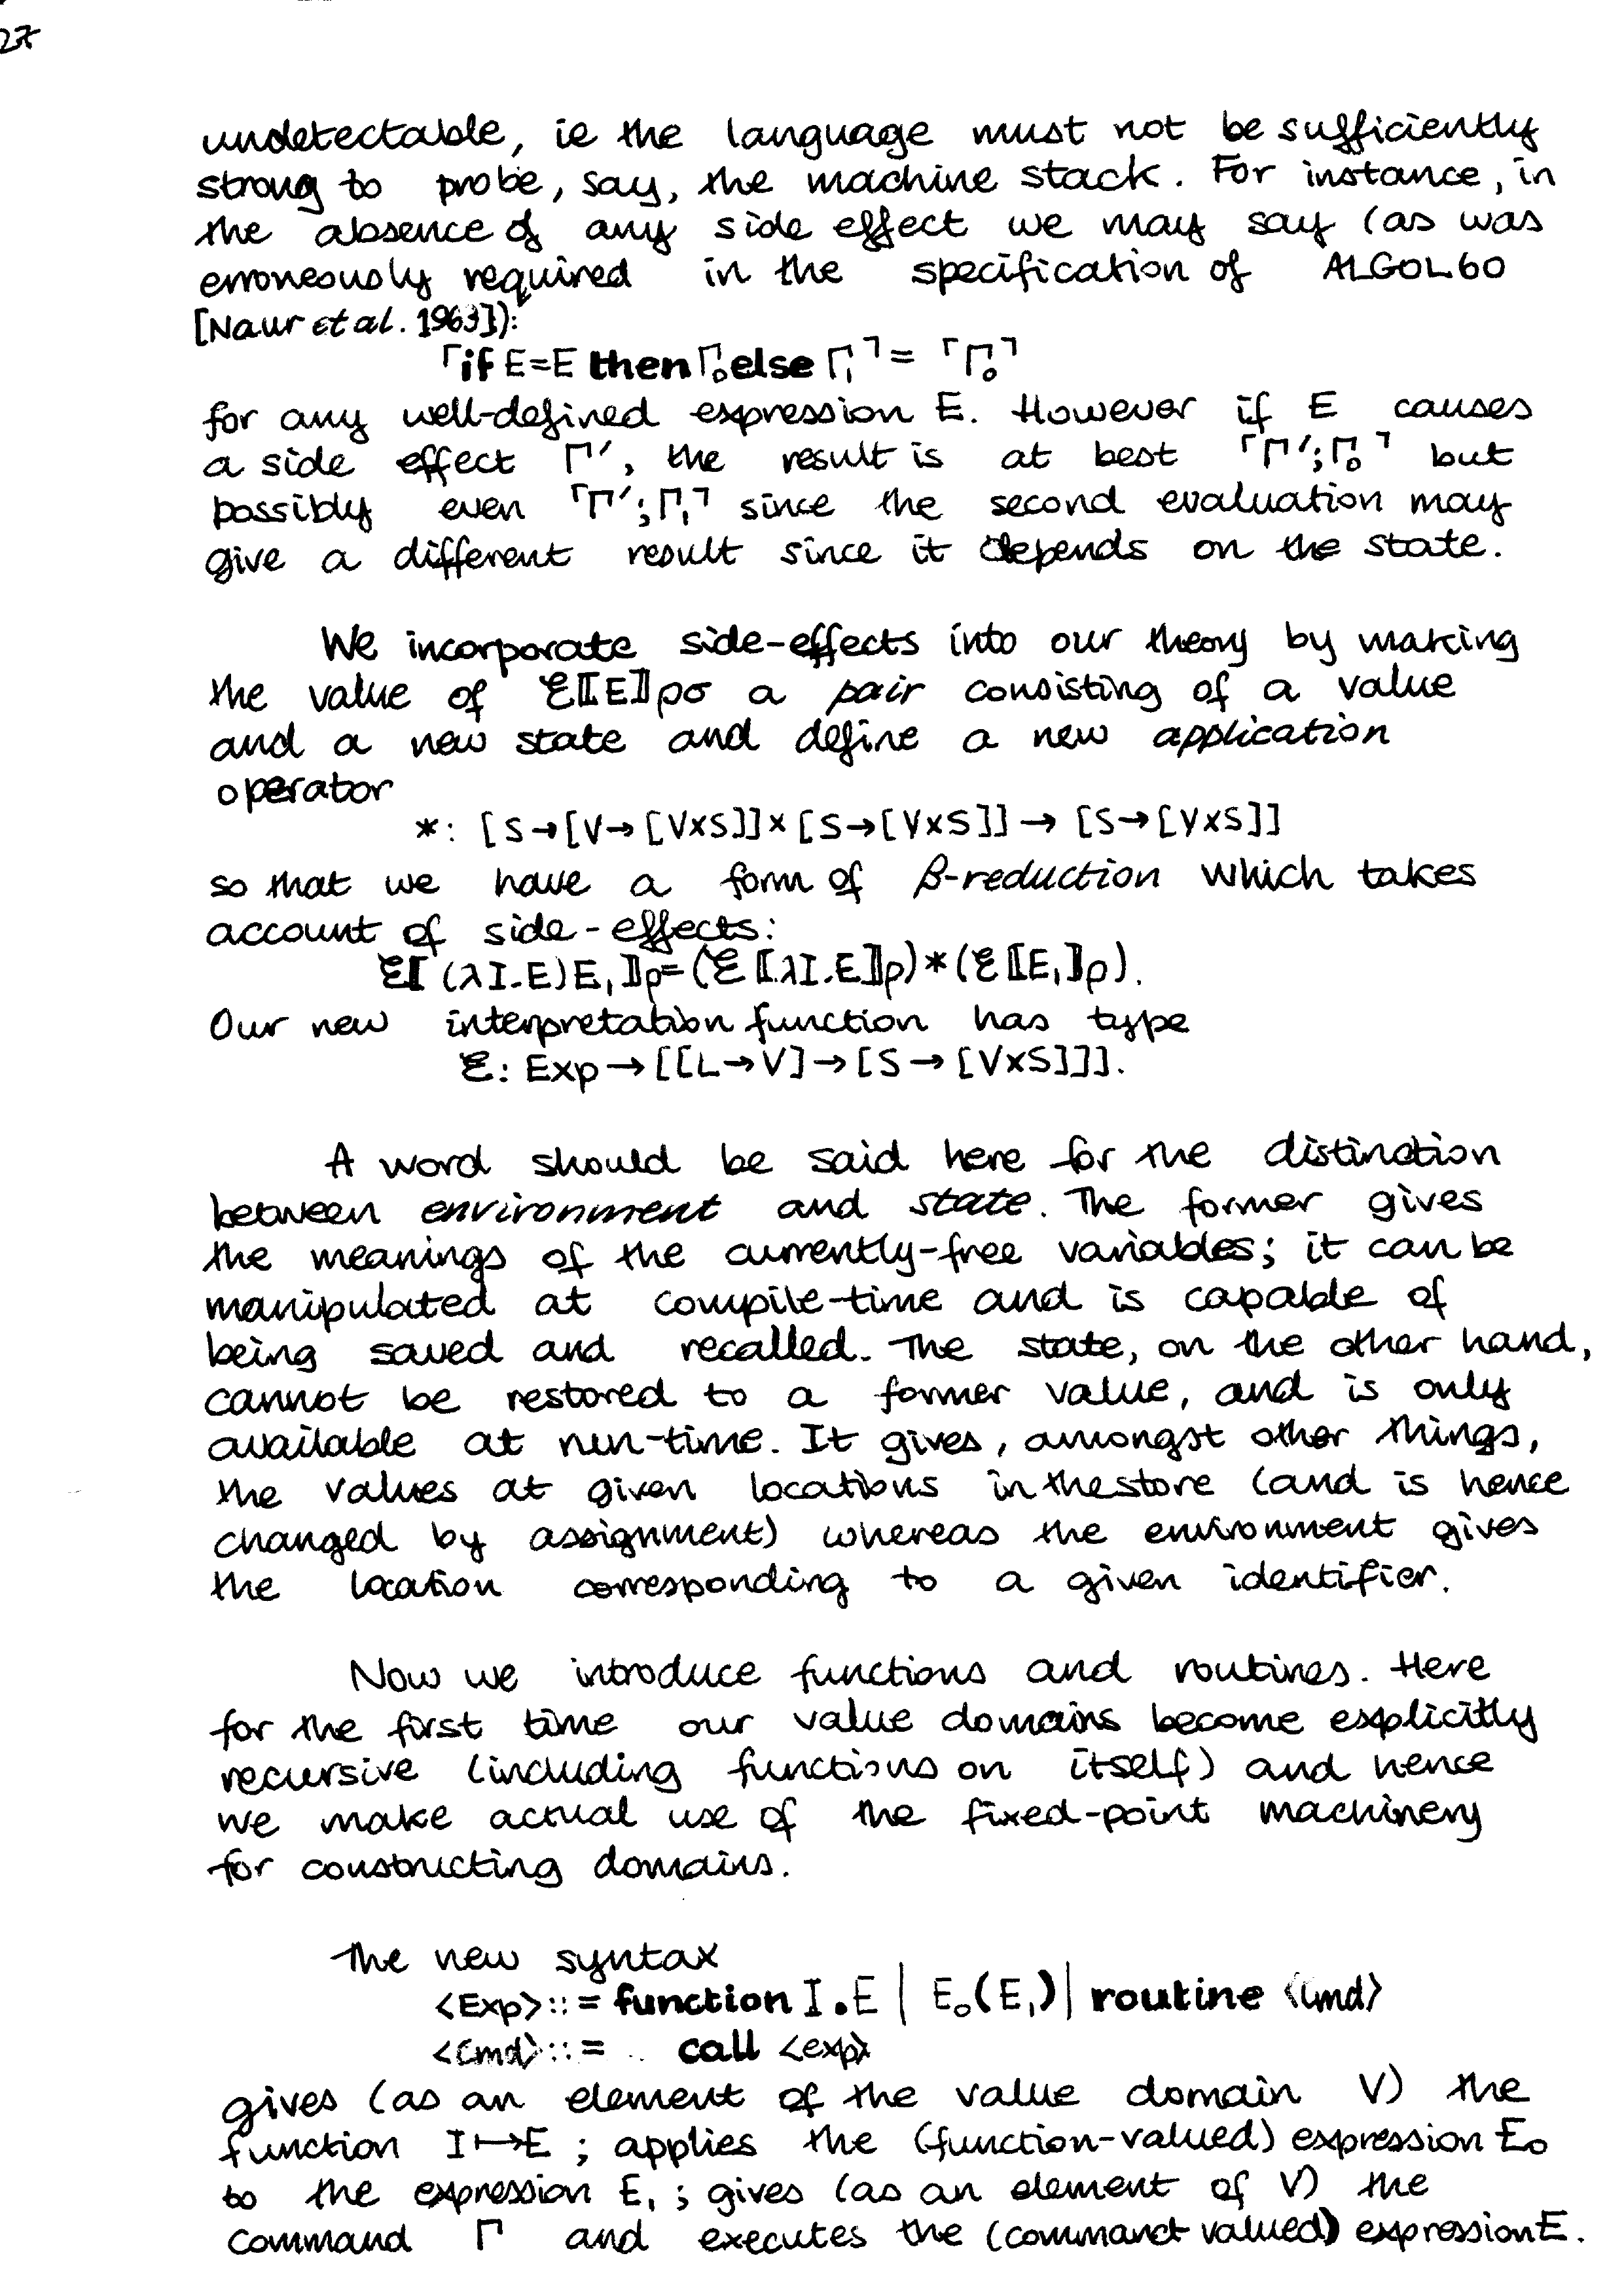 27
undetectable, ie the language must not be sufficiently
strong to probe, say, the machine stack. For instance, in
the absence of any side effect we may say (as was
erroneously required in the specification of ALGOL60
[Naur et al. 1963]):
⌜if E=E then Γ₀ else Γ₁⌝ = ⌜Γ₀⌝
for any well-defined expression E. However if E causes
a side effect Γ′, the result is at best ⌜Γ′;Γ₀⌝ but
possibly even ⌜Γ′;Γ₁⌝ since the second evaluation may
give a different result since it depends on the state.
We incorporate side-effects into our theory by making
the value of ℰ⟦E⟧ρσ a pair consisting of a value
and a new state and define a new application
operator
*: [S→[V→[V×S]]×[S→[V×S]]→ [S→[V×S]]
so that we have a form of β-reduction which takes
account of side-effects:
ℰ⟦(λI.E)E₁⟧ρ=(ℰ⟦λI.E⟧ρ)*(ℰ⟦E₁⟧ρ).
Our new interpretation function has type
ℰ: Exp→[[L→V]→[S→[V×S]]].
A word should be said here for the distinction
between environment and state. The former gives
the meanings of the currently-free variables; it can be
manipulated at compile-time and is capable of
being saved and recalled. The state, on the other hand,
cannot be restored to a former value, and is only
available at run-time. It gives, amongst other things,
the values at given locations in the store (and is hence
changed by assignment) whereas the environment gives
the location corresponding to a given identifier.
Now we introduce functions and routines. Here
for the first time our value domains become explicitly
recursive (including functions on itself) and hence
we make actual use of the fixed-point machinery
for constructing domains.
The new syntax
<Exp>::= function I.E | E₀(E₁)| routine <Cmd>
<Cmd>::= .. call <exp>
gives (as an element of the value domain V) the
function I↦E ; applies the (function-valued) expression E₀
to the expression E₁ ; gives (as an element of V) the
command Γ and executes the (command valued) expression E.